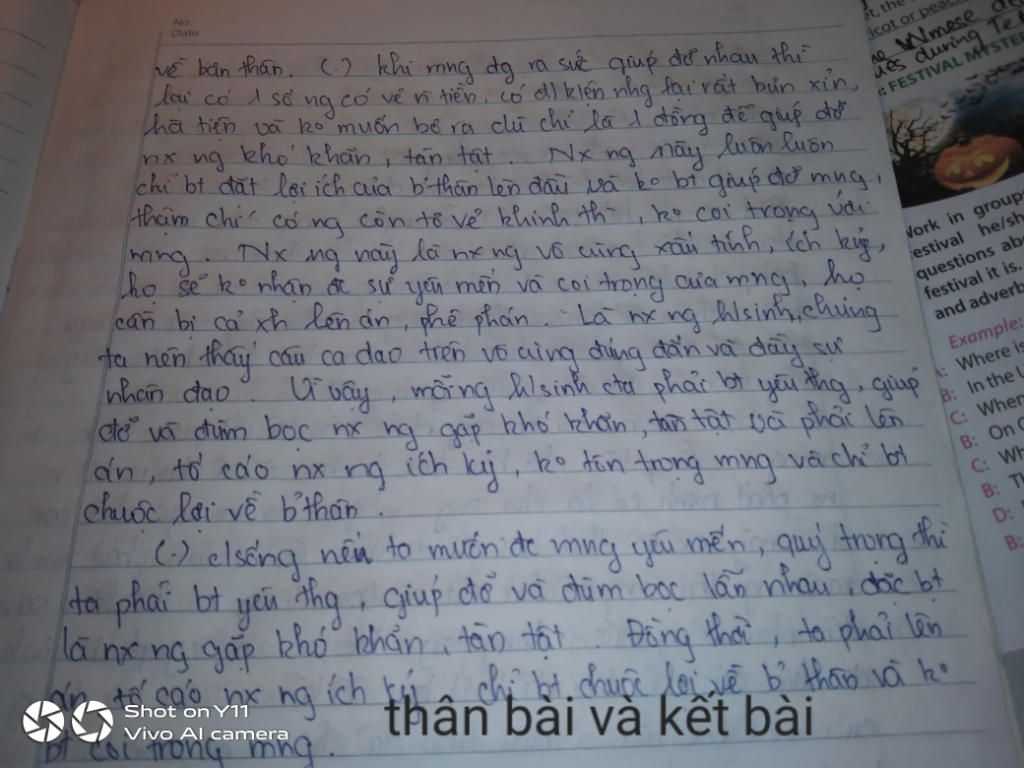 No.
Date
về bản thân. (.) khi mng đg ra sức giúp đỡ nhau thì
lại có 1 số ng có về n tiền, có đ/kiện nhg lại rất bủn xỉn,
hà tiện và ko muốn bỏ ra dù chỉ là 1 đồng để giúp đỡ
nx ng khó khăn, tàn tật. Nx ng này luôn luôn
chỉ bt đặt lợi ích của b'thân lên đầu và ko bt giúp đỡ mng,
thậm chí có ng còn tỏ vẻ khinh thị, ko coi trọng với
mng. Nx ng này là nx ng vô cùng xấu tính, ích kỷ,
họ sẽ ko nhận đc sự yêu mến và coi trọng của mng, họ
cần bị cả xh lên án, phê phán. Là nx ng h/sinh, chúng
ta nên thấy câu ca dao trên vô cùng đúng đắn và đầy sự
nhân đạo. Vì vậy, mỗi ng h/sinh cta phải bt yêu thg, giúp
đỡ và đùm bọc nx ng gặp khó khăn, tàn tật và phải lên
án, tố cáo nx ng ích kỷ, ko tôn trọng mng và chỉ bt
chuộc lợi về b'thân
(.) c/sống nếu ta muốn đc mng yêu mến, quý trọng thì
ta phải bt yêu thg, giúp đỡ và đùm bọc lẫn nhau, đặc bt
là nx ng gặp khó khăn, tàn tật. Đồng thời, ta phải lên
án tố cáo nx ng ích kỷ chỉ bt chuộc lợi về b'thân và ko
bt coi trọng mng.
thân bài và kết bài
Shot on Y11
Vivo AI camera
icot or peac
FESTIVAL MYSTE
Work in group
festival he/sh
questions abo
festival it is.
and adverb
Example:
Where is
B: In the U
C: When
B: On O
C: Wh
B: Th
D:
B: